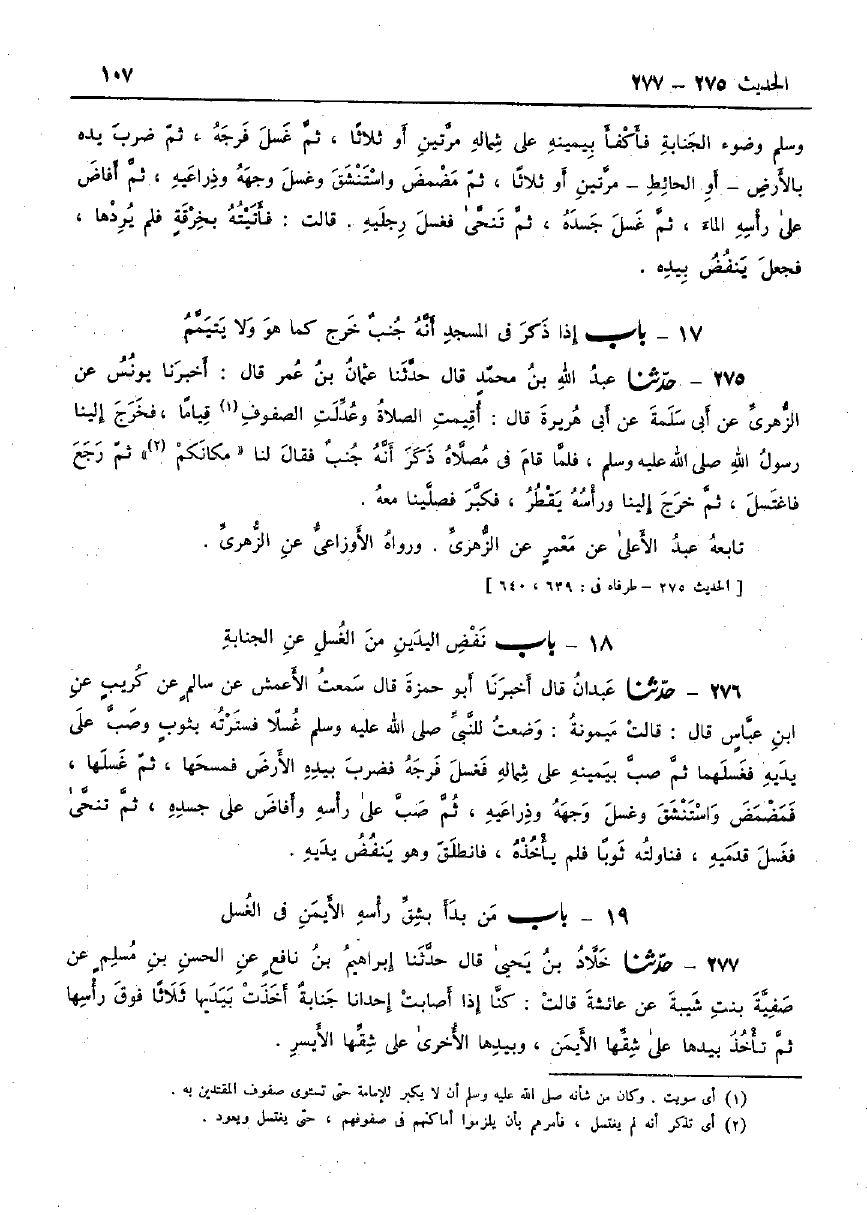 الحديث ٢٧٥ – ٢٧٧
١٠٧
وسلم وضوء الجَنابةِ فأَكْفأَ بِيمينِهِ على شِمالهِ مرَّتينِ أو ثلاثًا ، ثمَّ غَسلَ فَرجَهُ ، ثمّ ضربَ يدَه
بالأرضِ – أوِ الحائِطِ – مرَّتينِ أو ثلاثًا ، ثمّ مَضْمضَ واسْتَنْشَقَ وغسلَ وجهَهُ وذِراعَيهِ ، ثمَّ أفاضَ
علىٰ رأْسِهِ الماءَ ، ثمَّ غَسلَ جَسدَهُ ، ثمَّ تَنحَّىٰ فغسلَ رِجلَيهِ . قالت : فأَتَيْتُهُ بخِرْقَةٍ فلم يُرِدْها ،
فجعلَ يَنفُضُ بِيدِه .
١٧ – باب إذا ذَكرَ فى المسجدِ أنَّهُ جُنبٌ خَرج كما هوَ وَلا يَتيَمَّمُ
٢٧٥ – حدّثنا عبدُ اللهِ بنُ محمَّدٍ قال حدَّثَنا عثمانُ بنُ عُمر قال : أخبرَنا يونُسُ عن
الزُّهرىِّ عن أبى سَلَمةَ عن أبى هريرةَ قال : أُقيمتِ الصلاةُ وعُدِّلَتِ الصفوفِ (١) قِيامًا ، فخَرَجَ إلينا
رسولُ اللهِ صلى الله عليه وسلم ، فلمَّا قامَ فى مُصلَّاهُ ذَكَرَ أنَّهُ جُنبٌ فقالَ لنا « مكانَكمْ (٢)» ثمّ رَجَعَ
فاغتَسلَ ، ثمَّ خرَجَ إلينا ورأْسُهُ يَقْطُرُ ، فكبَّرَ فصلَّينا معهُ .
تابعهُ عبدُ الأَعلىٰ عن مَعْمرٍ عن الزُّهرىِّ . ورواهُ الأَوزاعىُّ عنِ الزُّهرىِّ .
[ الحديث ٢٧٥ – طرفاه فى : ٦٣٩ ، ٦٤٠ ]
١٨ – باب نَفْضِ اليدَينِ منَ الغُسلِ عنِ الجنابةِ
٢٧٦ – حدّثنا عَبدانُ قال أخبرَنَا أبو حمزةَ قال سَمعتُ الأَعمش عن سالمٍ عن كُريبٍ عنِ
ابنِ عبَّاسٍ قال : قالتْ مَيمونةُ : وَضعتُ للنَّبىِّ صلى الله عليه وسلم غُسلًا فستَرْتُه بثوبٍ وصَبَّ علَى
يدَيهِ فغَسلَهما ثمَّ صبَّ بيَمينهِ على شِمالهِ فَغسلَ فَرجَهُ فضربَ بيدِهِ الأَرضَ فمسحَها ، ثمّ غَسلَها ،
فَمَضْمَضَ وَاسْتَنْشَقَ وغسلَ وَجههُ وذِراعَيهِ ، ثُمَّ صَبَّ علىٰ رأْسهِ وأفاضَ على جسدِهِ ، ثمَّ تنحَّىٰ
فغَسلَ قدمَيهِ ، فناولتُه ثَوبًا فلم يأْخُذْهُ ، فانطلَقَ وهو يَنفُضُ يدَيهِ .
١٩ – باب مَن بدأَ بشِقِّ رأْسهِ الأَيمَنِ فى الغُسل
٢٧٧ – حدّثنا خَلَّادُ بنُ يَحيىٰ قال حدَّثَنا إبراهيمُ بنُ نافعٍ عنِ الحسنِ بنِ مُسلمٍ عن
صَفيَّةَ بنتِ شَيبةَ عن عائشةَ قالتْ : كنَّا إذا أصابتْ إحدانا جَنابةٌ أخَذَتْ بيَدَيها ثَلاثًا فوقَ رأْسِها
ثمَّ تأْخُذُ بيدِها علىٰ شِقِّها الأَيمَنِ ، وبيدِها الأُخرىٰ على شِقِّها الأَيسرِ .
(١) أى سويت . وكان من شأنه صلى الله عليه وسلم أن لا يكبر للإمامة حتى تستوى صفوف المقتدين به .
(٢) أى تذكر أنه لم يغتسل ، فأمرهم بأن يلزموا أماكنهم فى صفوفهم ، حتى يغتسل ويعود .